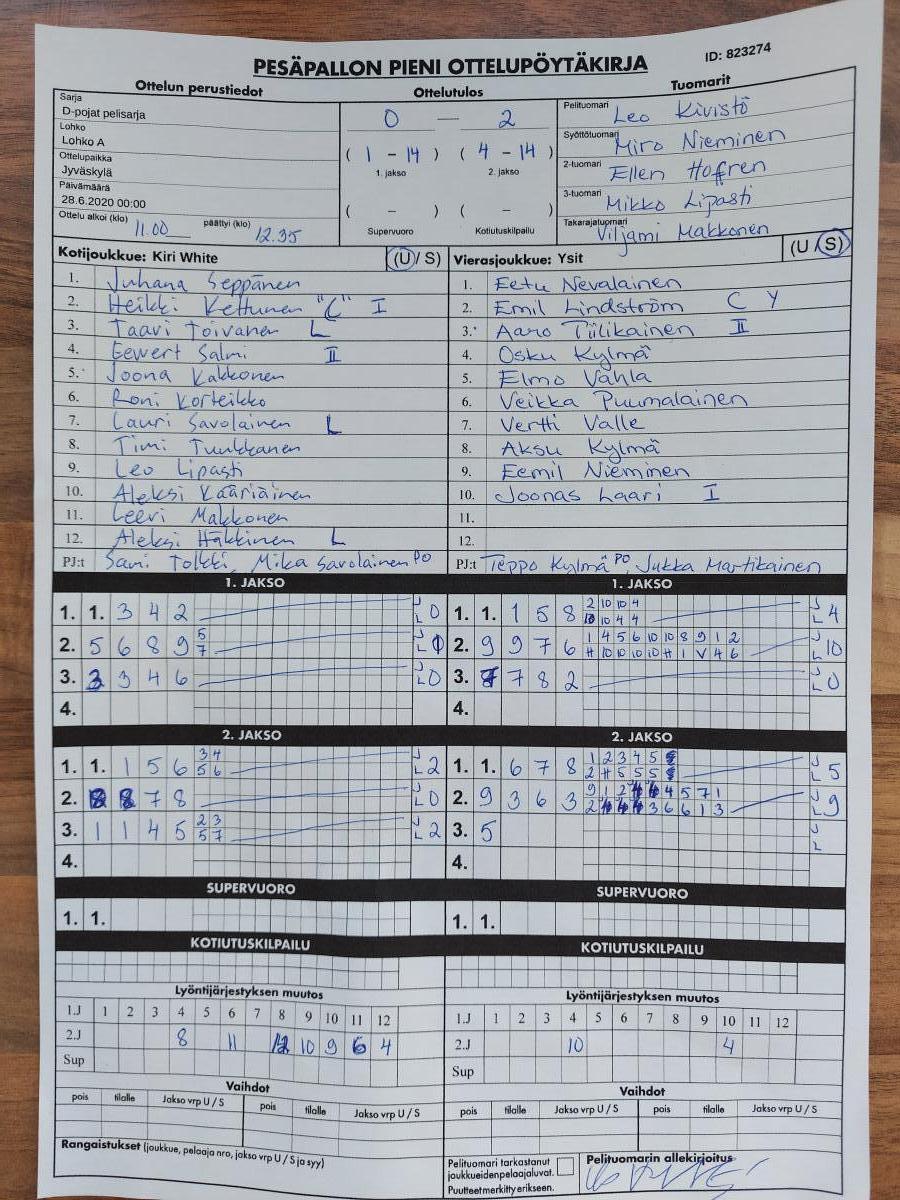 PESÄPALLON PIENI OTTELUPÖYTÄKIRJA
ID: 823274
Ottelun perustiedot
Sarja
D-pojat pelisarja
Lohko
Lohko A
Ottelupaikka
Jyväskylä
Päivämäärä
28.6.2020 00:00
Ottelu alkoi (klo) 11.00 päättyi (klo) 12.35
Ottelutulos
0 — 2
( 1 - 14 ) ( 4 - 14 )
1. jakso 2. jakso
( - ) ( - )
Supervuoro Kotiutuskilpailu
Tuomarit
Pelituomari Leo Kivistö
Syöttötuomari Miro Nieminen
2-tuomari Ellen Hoffren
3-tuomari Mikko Lipasti
Takarajatuomari Viljami Makkonen
Kotijoukkue: Kiri White (U / S)
1. Juhana Seppänen
2. Heikki Kettunen "C" I
3. Taavi Toivanen L
4. Eewert Salmi II
5. Joona Kakkonen
6. Roni Korteikko
7. Lauri Savolainen L
8. Timi Tuukkanen
9. Leo Lipasti
10. Aleksi Kääriäinen
11. Leevi Makkonen
12. Aleksi Häkkinen L
PJ:t Sami Tolkki, Mika Savolainen PO
Vierasjoukkue: Ysit (U / S)
1. Eetu Nevalainen
2. Emil Lindström C Y
3. Aaro Tiilikainen II
4. Osku Kylmä
5. Elmo Vahla
6. Veikka Puumalainen
7. Vertti Valle
8. Aksu Kylmä
9. Eemil Nieminen
10. Joonas Laari I
11.
12.
PJ:t Teppo Kylmä PO, Jukka Martikainen
1. JAKSO
1. 1. 3 4 2 J L 0
2. 5 6 8 9 5 7 J L 0
3. 3 3 4 6 J L 0
4.
1. JAKSO
1. 1. 1 5 8 2 10 10 4 J L 4
10 10 4 4
2. 9 9 7 6 1 4 5 6 10 10 8 9 1 2 J L 10
H 10 10 10 10 H 1 V 4 6
3. 7 7 8 2 J L 0
4.
2. JAKSO
1. 1. 1 5 6 3 4 J L 2
5 6
2. 8 7 8 J L 0
3. 1 1 4 5 2 3 J L 2
5 7
4.
2. JAKSO
1. 1. 6 7 8 1 2 3 4 5 J L 5
2 H 5 5 5
2. 9 3 6 3 9 1 2 4 5 7 1 J L 9
2 3 6 6 1 3
3. 5 J L
4.
SUPERVUORO
1. 1.
SUPERVUORO
1. 1.
KOTIUTUSKILPAILU
KOTIUTUSKILPAILU
Lyöntijärjestyksen muutos
1.J 1 2 3 4 5 6 7 8 9 10 11 12
2.J 8 11 12 10 9 6 4
Sup
Lyöntijärjestyksen muutos
1.J 1 2 3 4 5 6 7 8 9 10 11 12
2.J 10 4
Sup
Vaihdot
pois tilalle Jakso vrp U / S pois tilalle Jakso vrp U / S
Vaihdot
pois tilalle Jakso vrp U / S pois tilalle Jakso vrp U / S
Rangaistukset (joukkue, pelaaja nro, jakso vrp U / S ja syy)
Pelituomari tarkastanut
joukkueidenpelaajaluvat.
Puutteetmerkittyerikseen.
Pelituomarin allekirjoitus